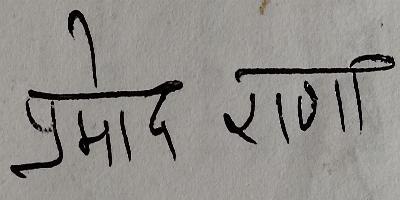 प्रमोद राणा